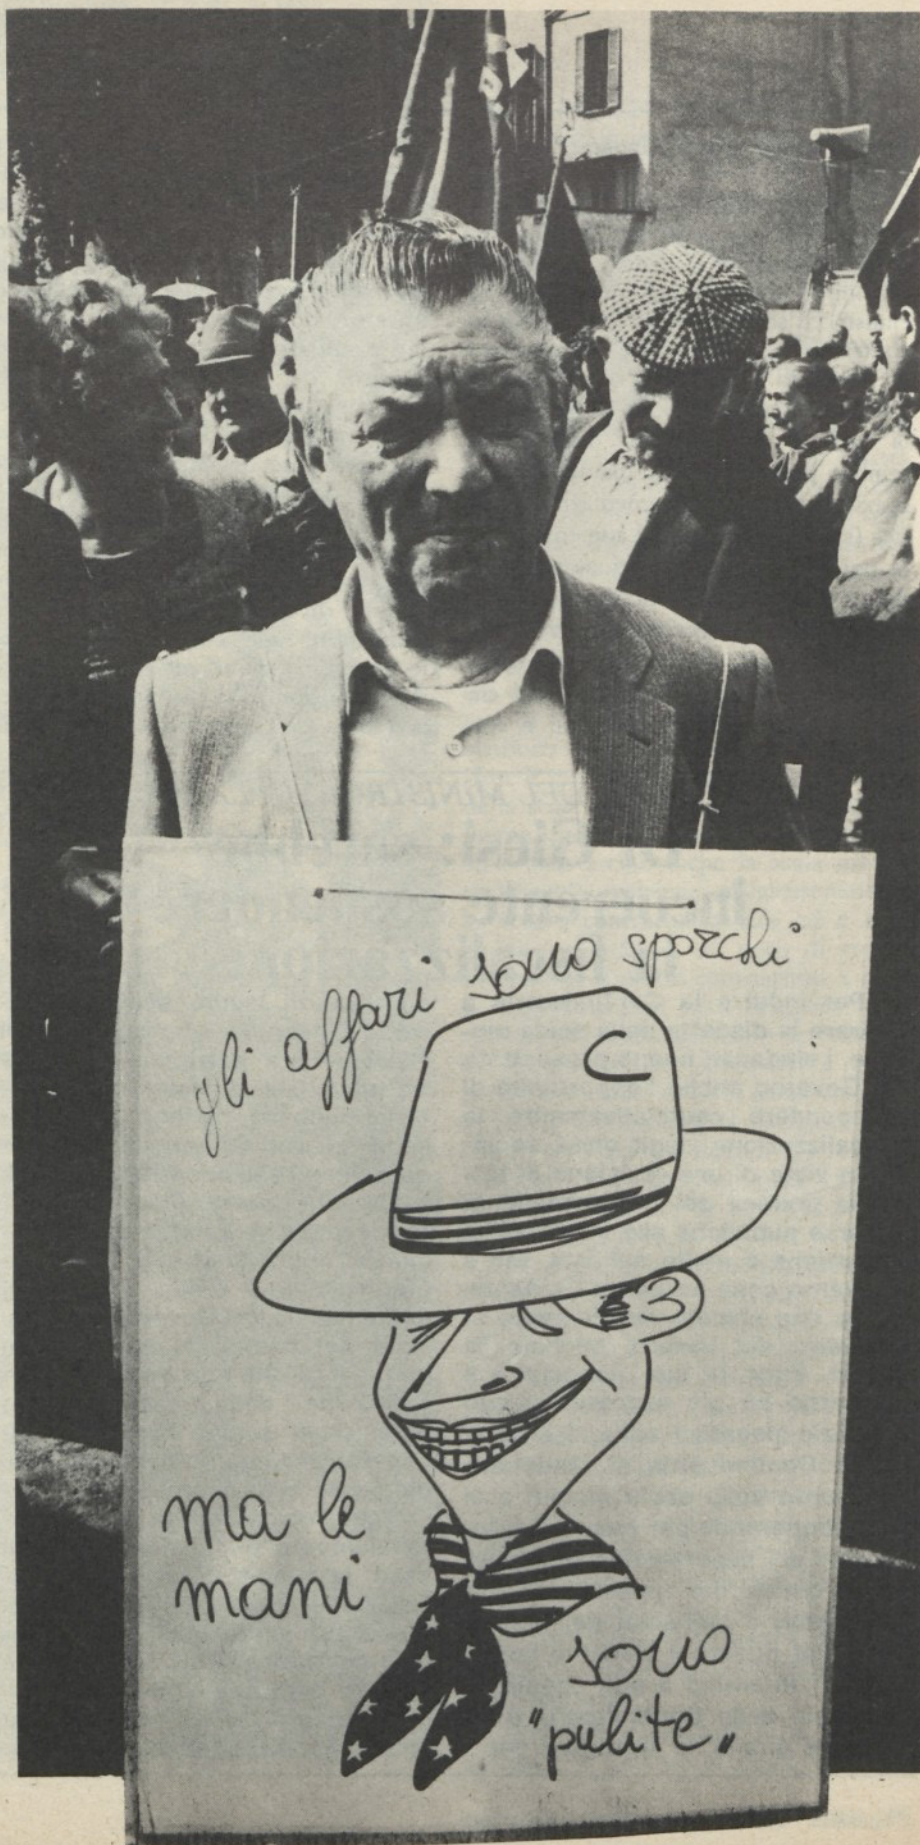 gli affari sono sporchi
ma le
mani
sono
"pulite„